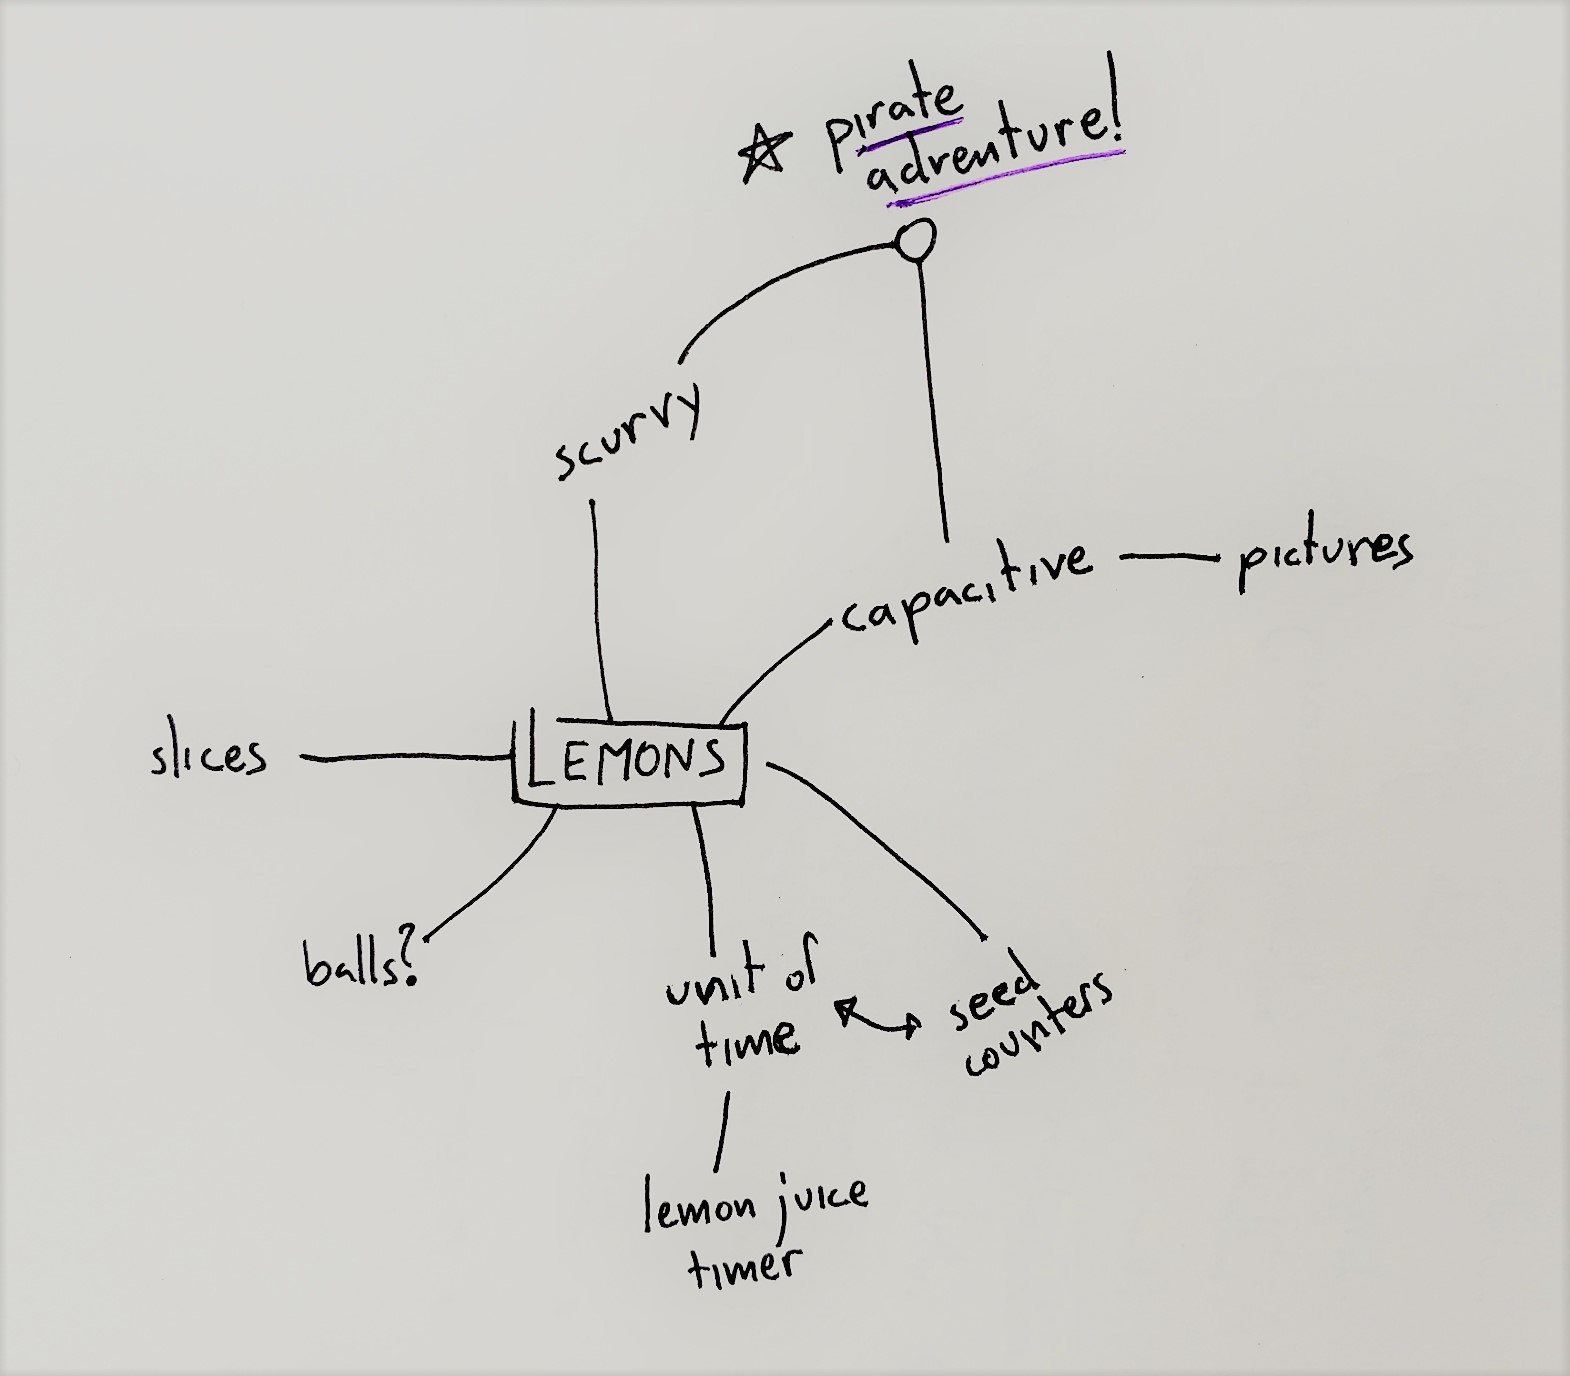 ☆ pirate
adventure!
scurvy
capacitive
pictures
slices
LEMONS
balls?
unit of
time
seed
counters
lemon juice
timer